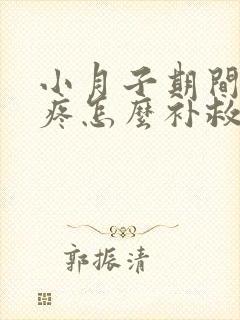 小月子期間
疼怎麼补救
郭振清